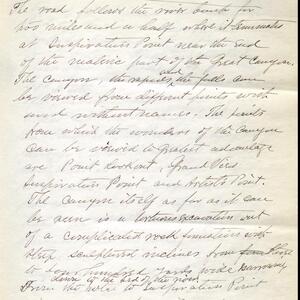 The road follows the river bank for
two miles and a half where it terminates
at Inspiration Point near the end
of the most part of the Great Canyon.
The Canyon, the rapids and the falls can
be viewed from different points with
and without names. The points
from which the wonders of the Canyon
can be viewed to greatest advantage
are Point Lookout, Grand View
Inspiration Point and Artist's Point.
The Canyon itself as far as it can
be seen is a excavation out
of a complicated rock formation with
steep sculptured inclines from three
to four hundred yards wide narrowing
down to the bed of the river
From the to Inspiration Point